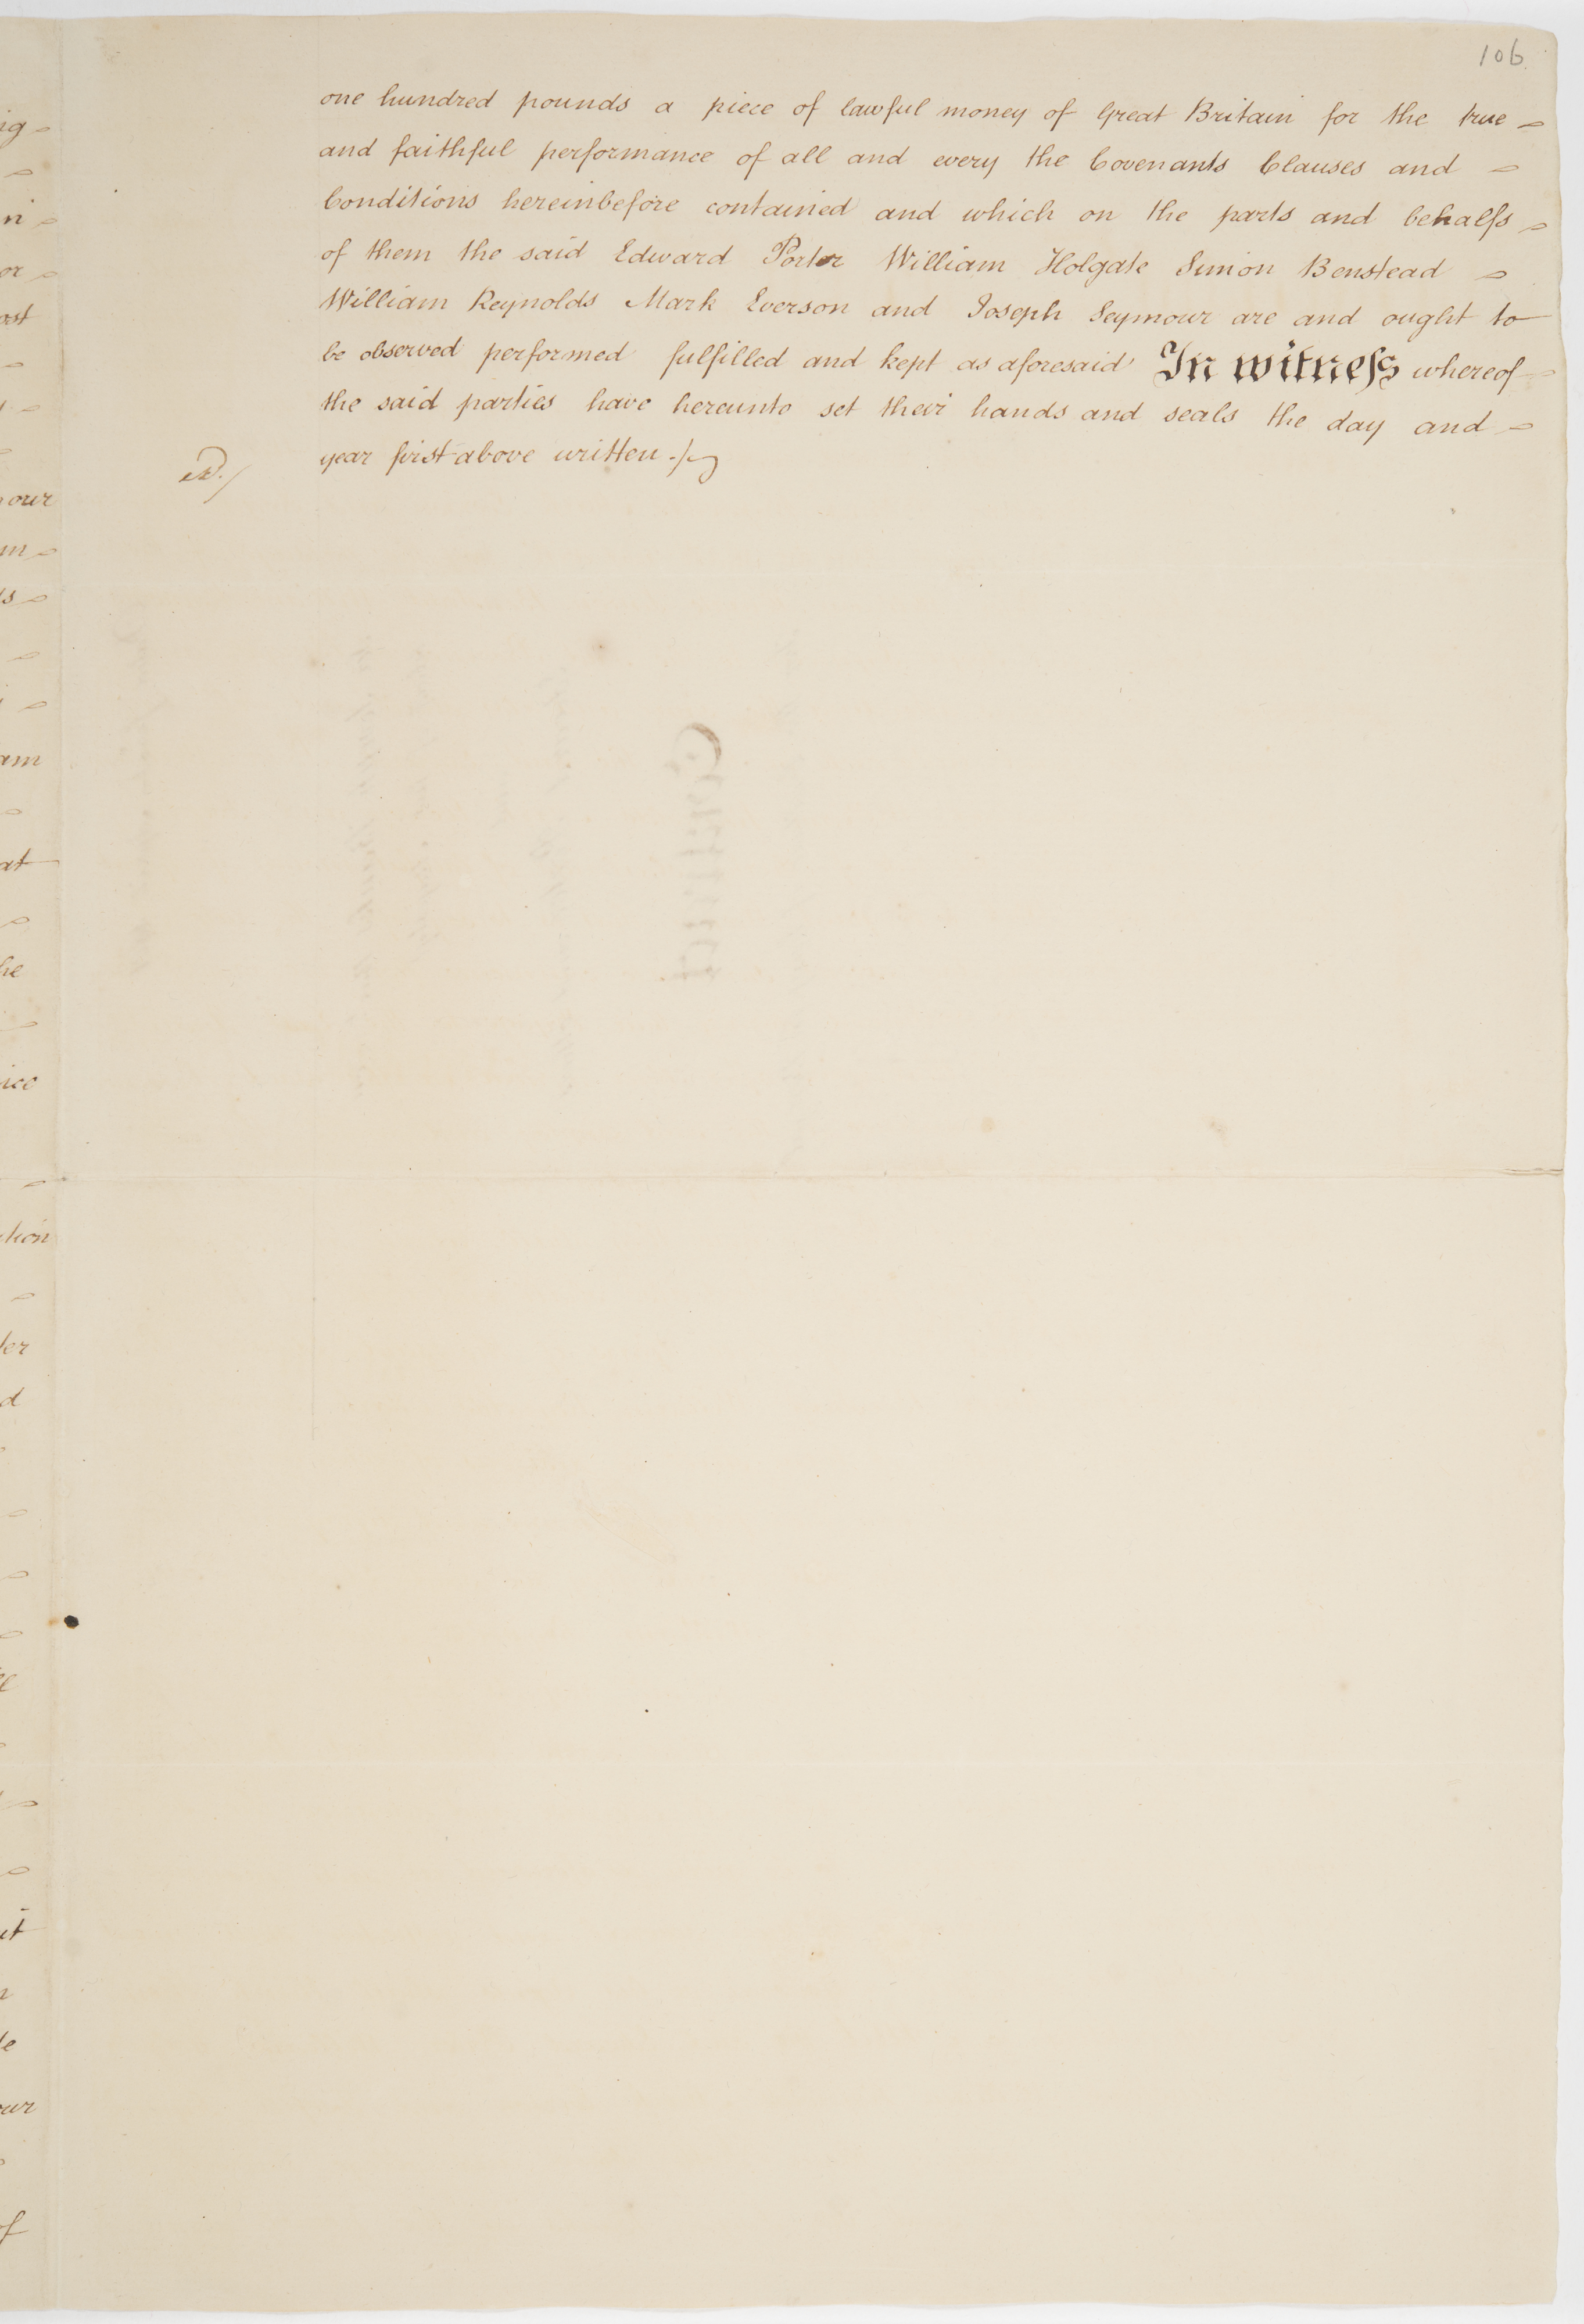 106
one hundred pounds a piece of lawful money of Great Britain for the true
and faithful performance of all and every the Covenants Clauses and
Conditions hereinbefore contained and which on the parts and behalfs
of them the said Edward Porter William Holgate Simon Benstead
William Reynolds Mark Everson and Joseph Seymour are and ought to
be observed performed fulfilled and kept as aforesaid In witness whereof
the said parties have hereunto set their hands and seals the day and
year first above written